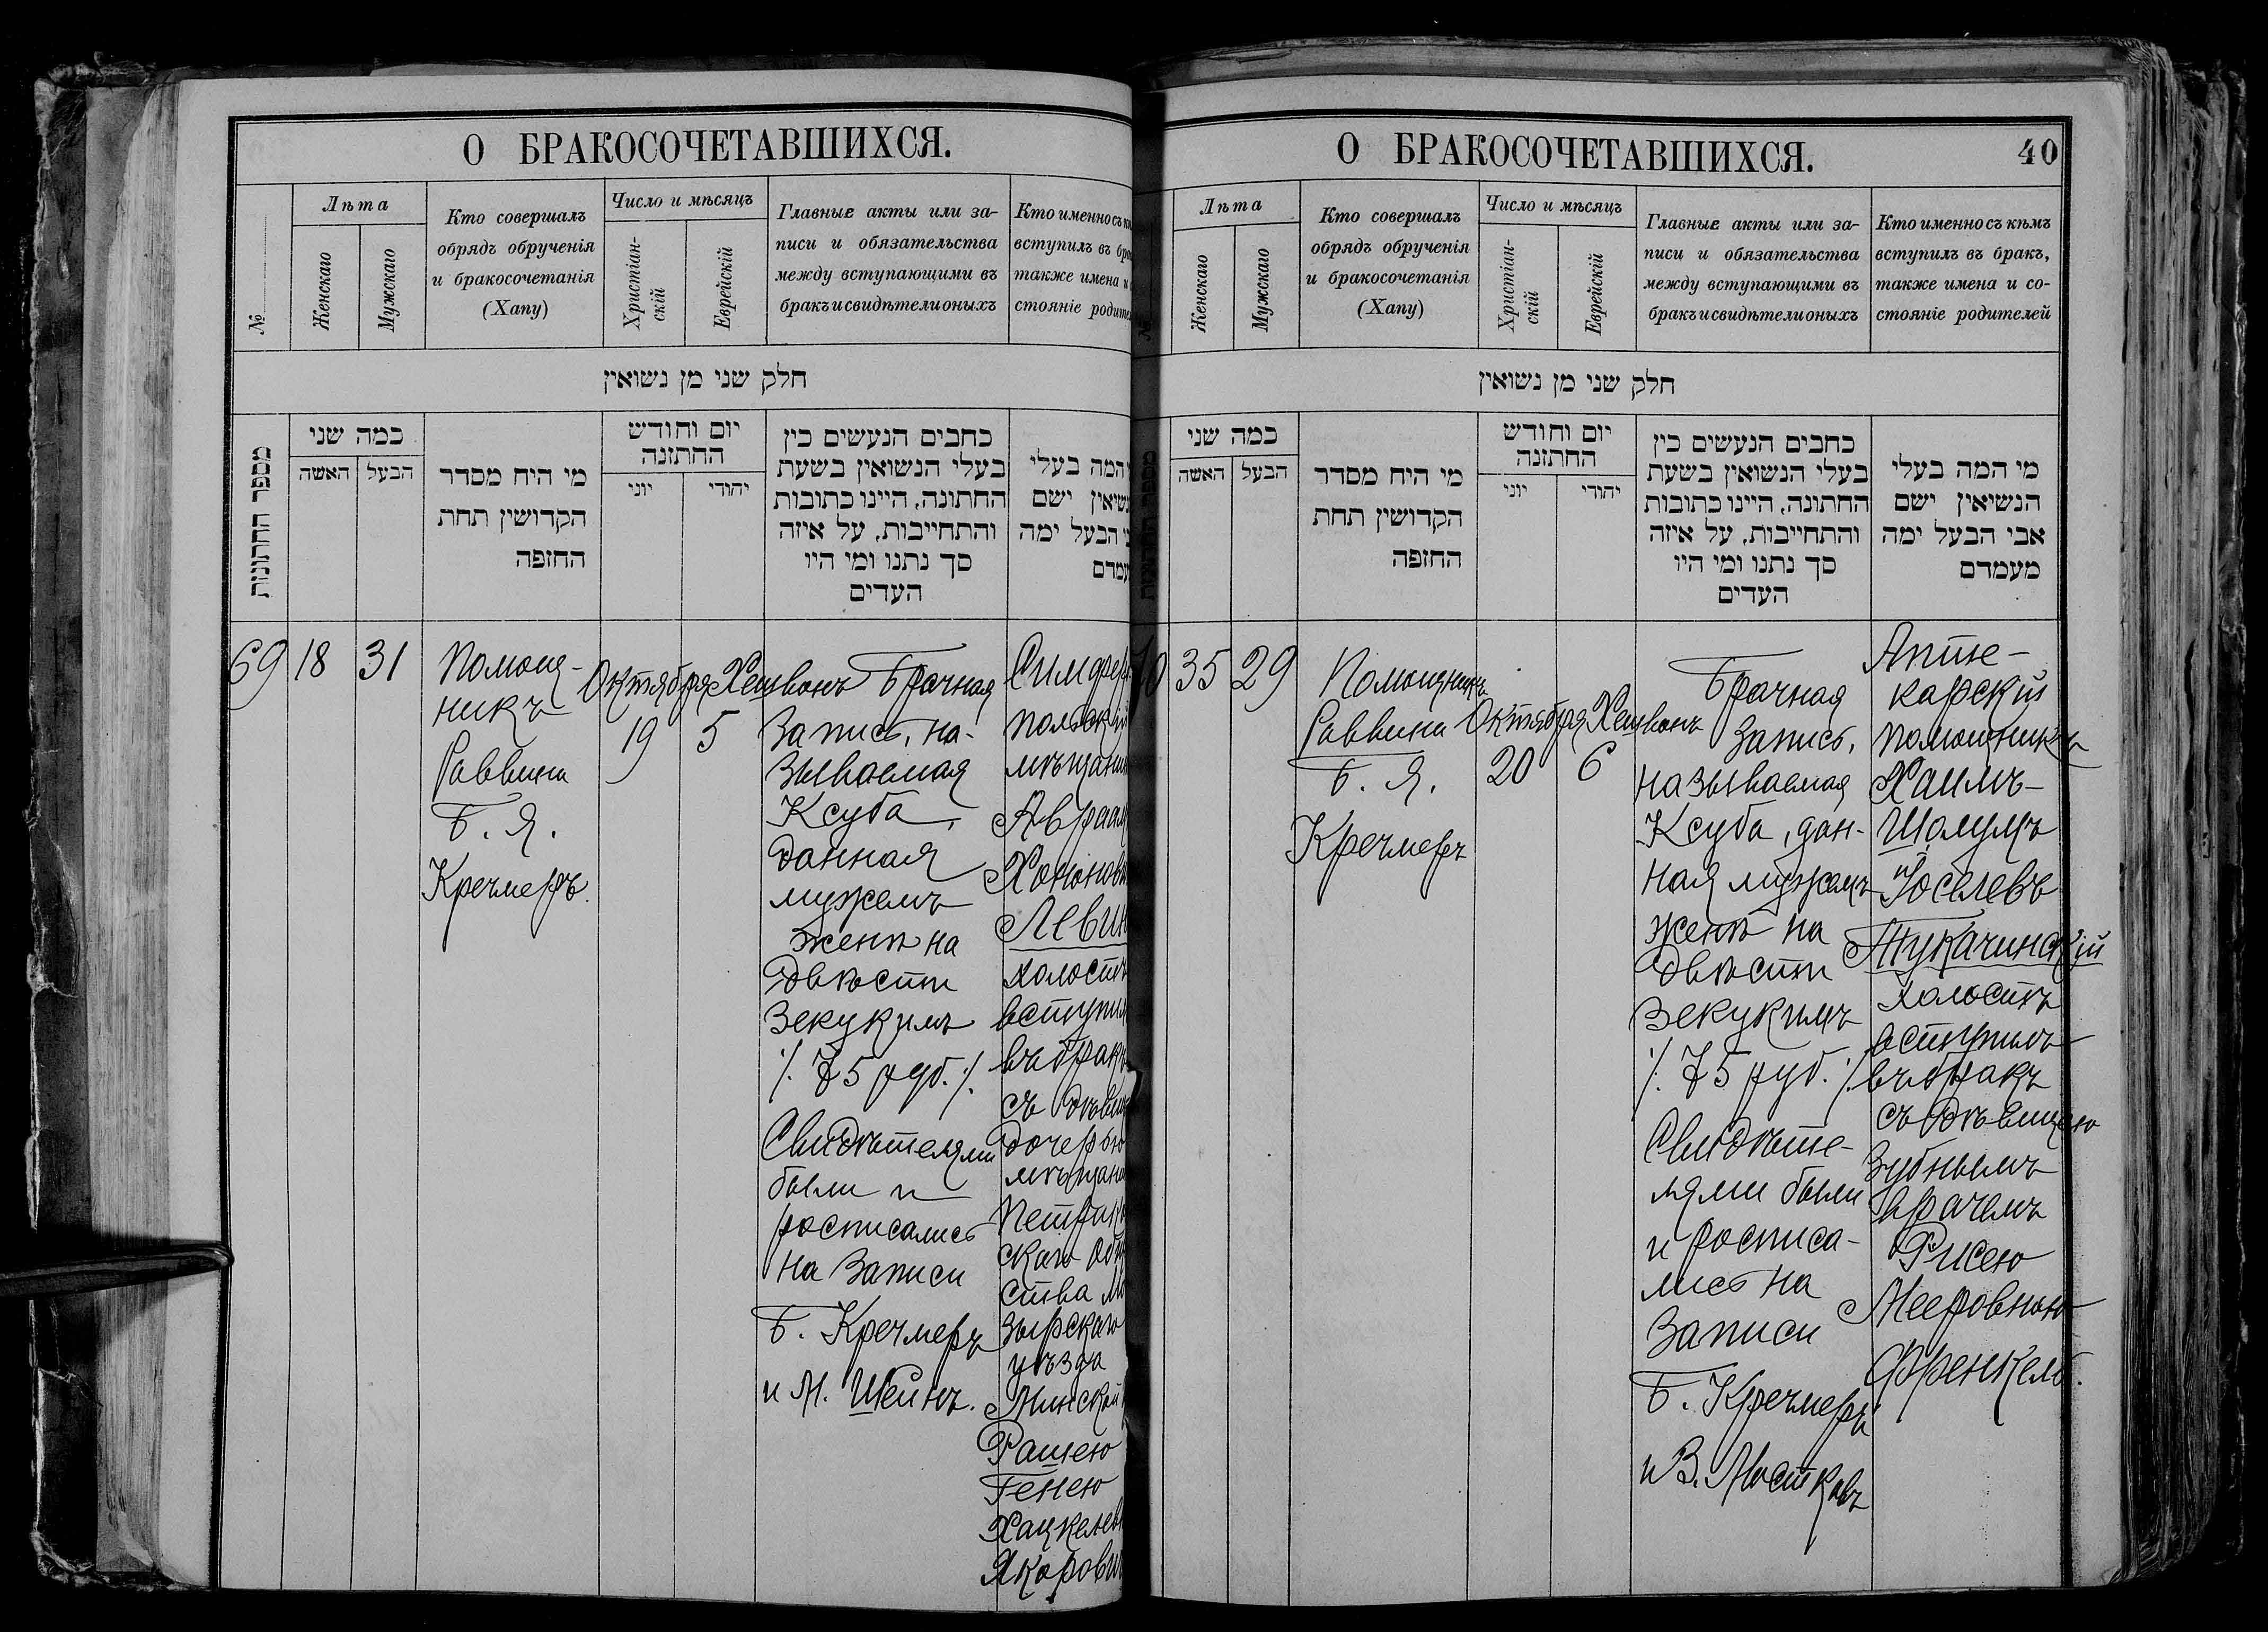 О БРАКОСОЧЕТАВШИХСЯ.
№
Лѣта
Женскаго
Мужскаго
Кто совершалъ
обрядъ обрученія
и бракосочетанія
(Хапу)
Число и мѣсяцъ
Христіан-
скій
Еврейскій
Главные акты или за-
писи и обязательства
между вступающими въ
бракъ и свидѣтели оныхъ
Кто именно съ
вступилъ въ
также имена и
стояніе
חלק שני מן נשואין
מספר החתונות
כמה שני
האשה
הבעל
מי היח מסדר
הקדושין תחת
החזפה
יום וחודש
החתזנה
יוני
יהודי
כחבים הנעשים כין
בעלי הנשואין בשעת
החתונה, היינו כתובות
והתחייבות, על איזה
סך נתנו ומי היו
העדים
המה בעלי
ישם
הבעל ימה
69
18
31
Помощ-
никъ
Раввина
Б. Я.
Кречмеръ.
Октября
19
Хешвонъ
5
Брачная
Запись, на-
зываемая
Ксуба,
данная
мужемъ
женѣ на
двѣсти
зекукимъ
⁒ 75 руб. ⁒
Свидѣтелями
были и
росписались
на Записи
Б. Кречмеръ
и М. Шейнъ.
Симфер
польскій
мѣщанин
Авраам
Левин
холостъ
вступил
въ бракъ
съ дѣвиц
дочерью
мѣщани
Петрик
скаго Общ
ства Мо
зырскаго
уѣзда
Минской
Рашею
Генею
Хацкелев
О БРАКОСОЧЕТАВШИХСЯ.
40
Лѣта
Женскаго
Мужскаго
Кто совершалъ
обрядъ обрученія
и бракосочетанія
(Хапу)
Число и мѣсяцъ
Христіан-
скій
Еврейскій
Главные акты или за-
писи и обязательства
между вступающими въ
бракъ и свидѣтели оныхъ
Кто именно съ кѣмъ
вступилъ въ бракъ,
также имена и со-
стояніе родителей
חלק שני מן נשואין
כמה שני
האשה
הבעל
מי היח מסדר
הקדושין תחת
החזפה
יום וחודש
החתזנה
יוני
יהודי
כחבים הנעשים כין
בעלי הנשואין בשעת
החתונה, היינו כתובות
והתחייבות, על איזה
סך נתנו ומי היו
העדים
מי המה בעלי
הנשיאין ישם
אבי הבעל ימה
מעמדם
35
29
Помощникъ
Раввина
Б. Я.
Кречмеръ
Октября
20
Хешвонъ
6
Брачная
Запись,
называемая
Ксуба, дан-
ная мужемъ
женѣ на
двѣсти
зекукимъ
⁒ 75 руб. ⁒
Свидѣте-
лями были
и росписа-
лись на
Записи
Б. Кречмеръ
и В. Мостковъ
Апте-
карскій
помощникъ
Хаимъ-
Шолумъ
Іоселевъ
Тукачинскій
холостъ
вступилъ
въ бракъ
съ дѣвицею
Зубнымъ
врачемъ
Рисею
Мееровною
Френкель.